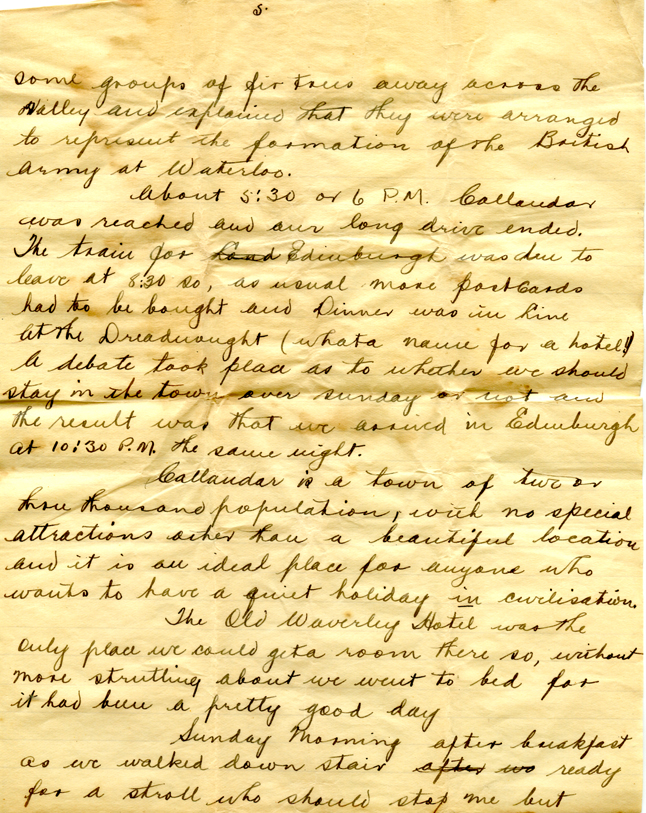 5.
some groups of fir trees away across the
Valley and explained that they were arranged
to represent the formation of the British
Army at Waterloo.
About 5:30 or 6 P.M. Callandar
was reached and our long drive ended.
The train for Lond Edinburgh was due to
leave at 8:30 so, as usual more post cards
had to be bought and Dinner was in line
at the Dreadnought (what a name for a hotel!)
A debate took place as to whether we should
stay in the town over Sunday or not and
the result was that we arrived in Edinburgh
at 10:30 P.M. the same night.
Callandar is a town of two or
three thousand population, with no special
attractions other than a beautiful location
and it is an ideal place for anyone who
wants to have a quiet holiday in civilisation.
The Old Waverley Hotel was the
only place we could get a room there so, without
more strutting about we went to bed for
it had been a pretty good day
Sunday Morning after breakfast
as we walked down stair after we ready
for a stroll who should stop me but